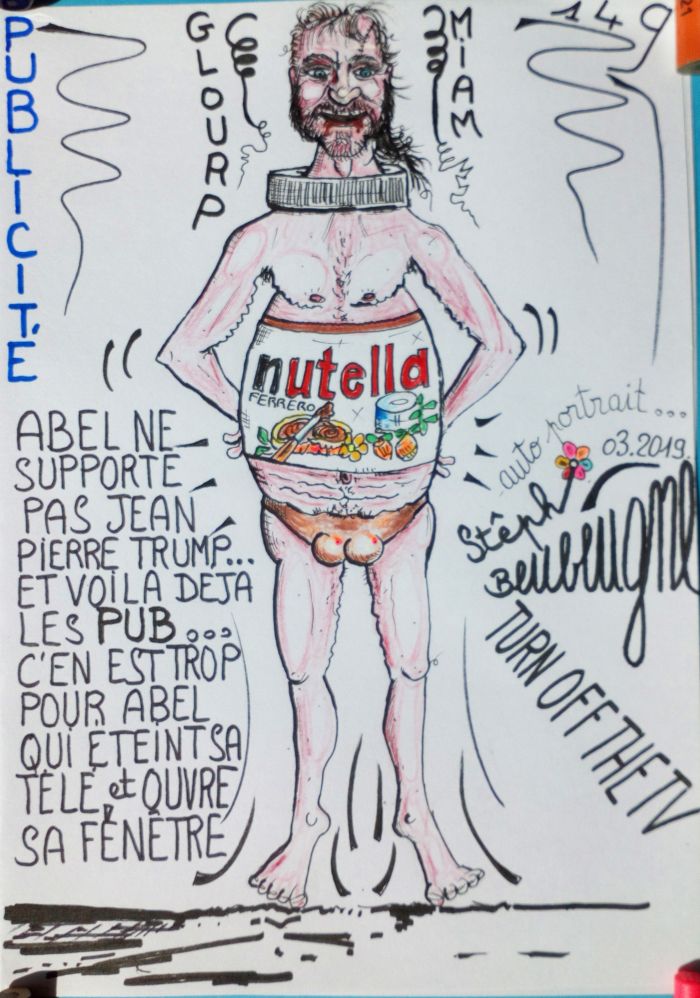 PUBLICITÉ
GLOURP
MIAM
149
21
nutella
FERRERO
ABEL NE
SUPPORTE
PAS JEAN
PIERRE TRUMP...
ET VOILA DEJA
LES PUB...
C'EN EST TROP
POUR ABEL
QUI ÉTEINT SA
TÉLÉ, et OUVRE
SA FENÊTRE
auto portrait...
03.2019.
Stéph
Beubeugne
TURN OFF THE TV